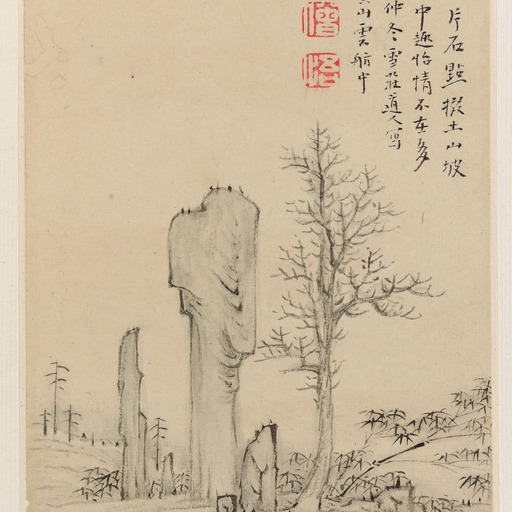 片石點撥土山坡
中趣怡情不在多
仲冬雪莊道人寫
山雲舫中
僧悟